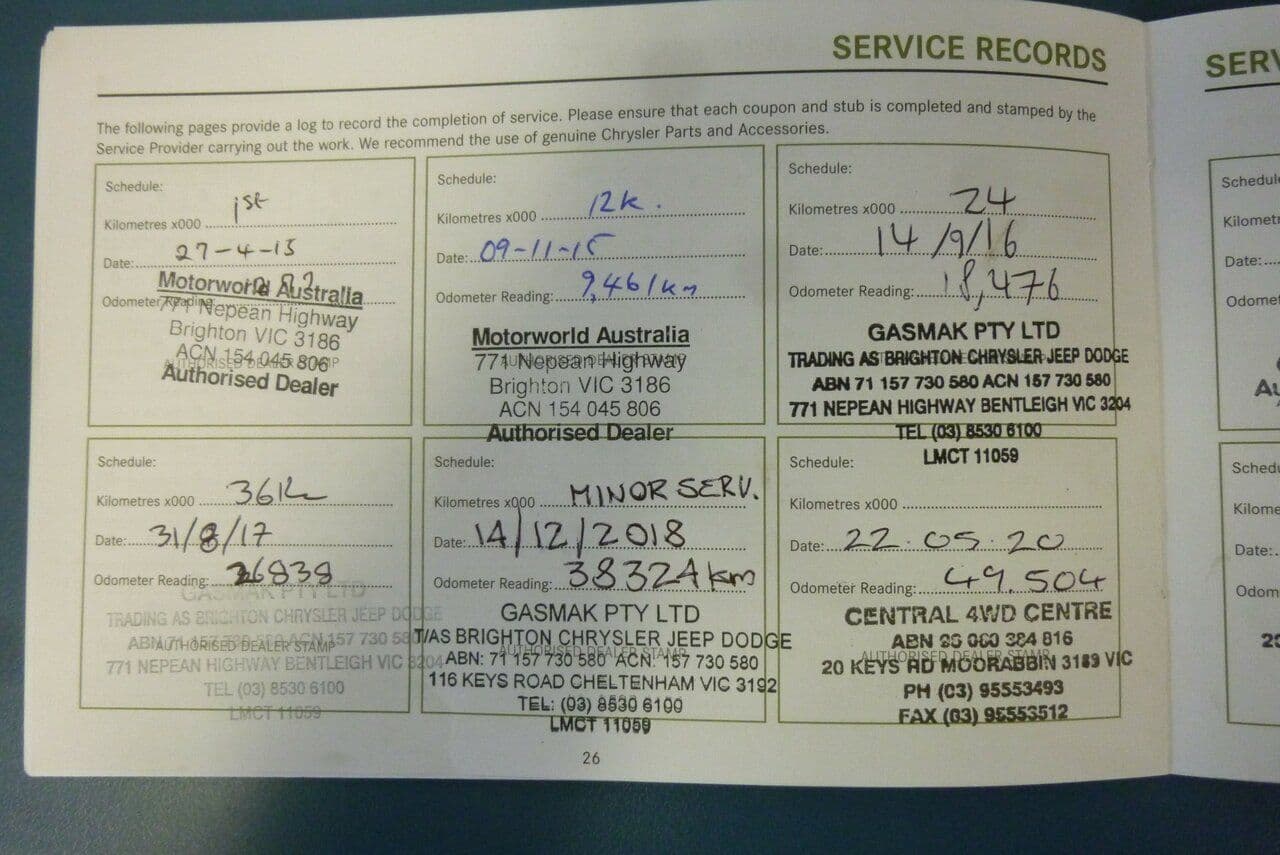 SERVICE RECORDS
The following pages provide a log to record the completion of service. Please ensure that each coupon and stub is completed and stamped by the
Service Provider carrying out the work. We recommend the use of genuine Chrysler Parts and Accessories.
Schedule:
Kilometres x000 1st
Date: 27-4-15
Odometer Reading:
Motorworld Australia
771 Nepean Highway
Brighton VIC 3186
ACN 154 045 806
AUTHORISED DEALER STAMP
Authorised Dealer
Schedule:
Kilometres x000 12k.
Date: 09-11-15
Odometer Reading: 9,461km
Motorworld Australia
AUTHORISED DEALER STAMP
771 Nepean Highway
Brighton VIC 3186
ACN 154 045 806
Authorised Dealer
Schedule:
Kilometres x000 24
Date: 14/9/16
Odometer Reading: 18,476
GASMAK PTY LTD
TRADING AS BRIGHTON CHRYSLER JEEP DODGE
ABN 71 157 730 580 ACN 157 730 580
771 NEPEAN HIGHWAY BENTLEIGH VIC 3204
TEL (03) 8530 6100
LMCT 11059
Schedule:
Kilometres x000 36K
Date: 31/8/17
Odometer Reading: 26838
GASMAK PTY LTD
TRADING AS BRIGHTON CHRYSLER JEEP DODGE
ABN 71 157 730 580 ACN 157 730 58
AUTHORISED DEALER STAMP
771 NEPEAN HIGHWAY BENTLEIGH VIC 3204
TEL (03) 8530 6100
LMCT 11059
Schedule:
Kilometres x000 MINOR SERV.
Date: 14/12/2018
Odometer Reading: 38324km
GASMAK PTY LTD
T/AS BRIGHTON CHRYSLER JEEP DODGE
AUTHORISED DEALER STAMP
ABN: 71 157 730 580 ACN: 157 730 580
116 KEYS ROAD CHELTENHAM VIC 3192
TEL: (03) 8530 6100
LMCT 11059
Schedule:
Kilometres x000
Date: 22.05.20
Odometer Reading: 49.504
CENTRAL 4WD CENTRE
ABN 95 060 384 816
AUTHORISED DEALER STAMP
20 KEYS RD MOORABBIN 3189 VIC
PH (03) 95553493
FAX (03) 95553512
26
SERV
Schedul
Kilomet
Date:
Odome
Au
Schedu
Kilome
Date:
Odom